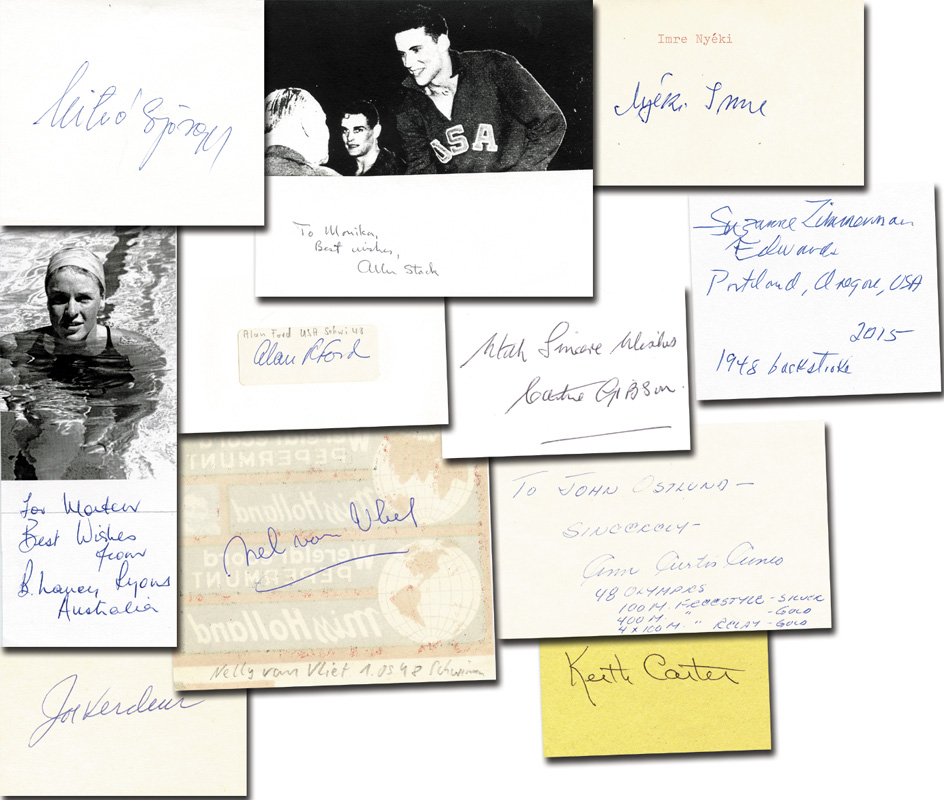 Mitró György
USA
To Monika,
Best wishes,
Allen Stack
Imre Nyéki
Nyéki Imre
Suzanne Zimmerman
Edwards
Portland, Oregon, USA
2015
1948 backstroke
Alan Ford USA Schwi 48
Alan R Ford
With Sincere Wishes
Cathie Gibson.
For
Best Wishes
from
B. Lyons
Australia
Wereld
PEPERMUNT
Holland
Wereld
PEPERMUNT
Holland
Nel van Vliet
Nelly van Vliet 1. OS 48 Schwimm
TO JOHN OSTLUND -
SINCERELY -
Ann Curtis Cuneo
48 OLYMPICS
100 M. FREESTYLE - SILVER
400 M. " - GOLD
4 x 100 M. " RELAY - GOLD
Keith Carter
Joe Verdeur